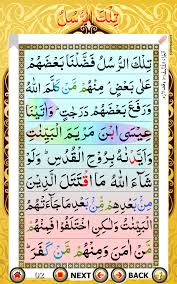 تِلْكَ الرُّسُلُ
تِلْكَ الرُّسُلُ فَضَّلْنَا بَعْضَهُمْ
عَلٰى بَعْضٍ ۘ مِنْهُمْ مَّنْ كَلَّمَ اللّٰهُ
وَرَفَعَ بَعْضَهُمْ دَرَجٰتٍ ؕ وَاٰتَيْنَا
عِيْسَى ابْنَ مَرْيَمَ الْبَيِّنٰتِ
وَاَيَّدْنٰهُ بِرُوْحِ الْقُدُسِ ؕ وَلَوْ
شَآءَ اللّٰهُ مَا اقْتَتَلَ الَّذِيْنَ
مِنْۢ بَعْدِهِمْ مِّنْۢ بَعْدِ مَا
جَآءَتْهُمُ الْبَيِّنٰتُ وَلٰكِنِ اخْتَلَفُوْا فَمِنْهُمْ
مَّنْ اٰمَنَ وَمِنْهُمْ مَّنْ كَفَرَ ؕ
02 NEXT BACK